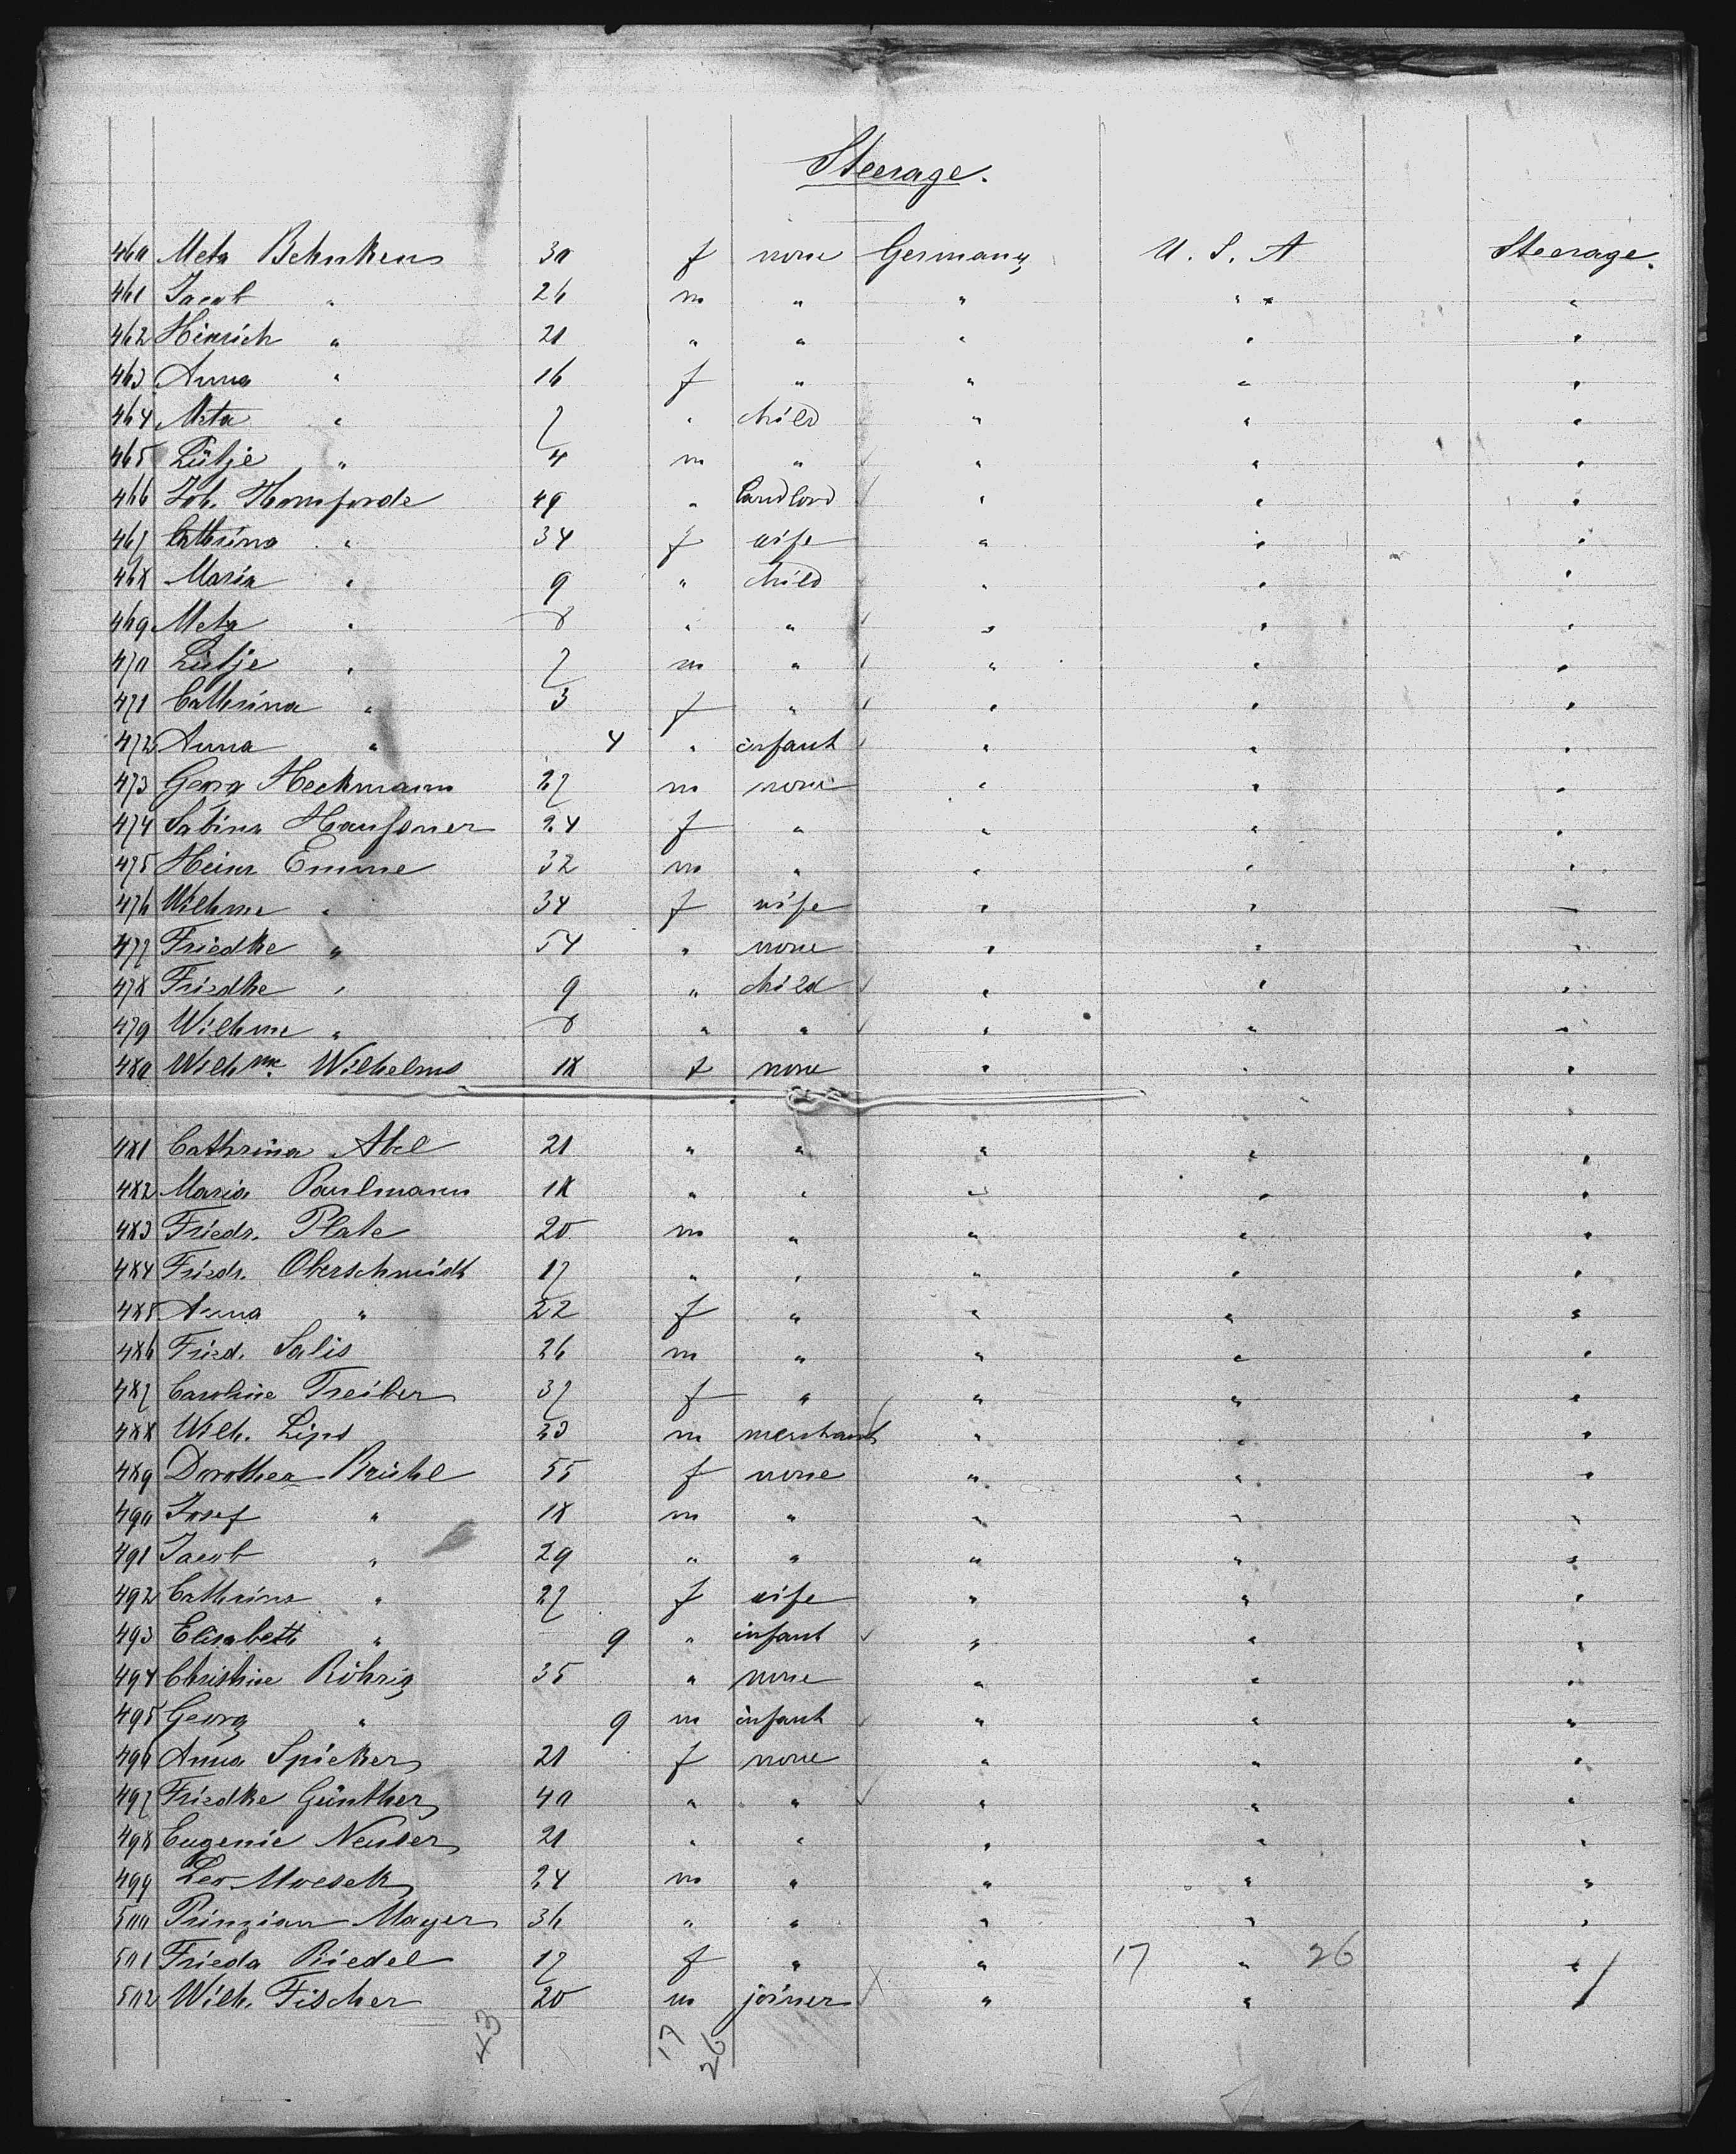 Steerage.
460 Meta Behnken 30 f none Germany U. S. A Steerage.
461 Jacob " 26 m " " " " "
462 Hinrich " 21 " " " " "
463 Anna " 16 f " " " "
464 Meta " 7 " child " " "
465 Lütje " 4 m " " " "
466 Joh. Thomforde 49 " landlord " " "
467 Cathrina " 34 f wife " " "
468 Maria " 9 " child " " "
469 Meta " 8 " " " " "
470 Lütje " 7 m " " " "
471 Cathrina " 3 f " " " "
472 Anna " 4 " infant " " "
473 Georg Heckmann 27 m none " " "
474 Sabina 24 f " " " "
475 Heinr Emme 32 m " " " "
476 Wilhme " 34 f wife " " "
477 Friedke " 54 " none " " "
478 Friedke " 9 " child " " "
479 Wilhme " 8 " " " " "
480 Wilhme. Wilhelms 18 f none " " "
481 Cathrina Abel 21 " " " " "
482 Maria Paulmann 18 " " " " "
483 Friedr. Plate 20 m " " " "
484 Friedr. Oberschmidt 17 " " " " "
485 Anna " 22 f " " " "
486 Fried. Salis 26 m " " " "
487 Caroline Treiber 37 f " " " "
488 Wilh. Lips 23 m merchant " " "
489 Dorothea Brühl 55 f none " " "
490 Josef " 18 m " " " "
491 Jacob " 29 " " " " "
492 Cathrina " 27 f wife " " "
493 Elisabeth " 9 " infant " " "
494 Christine Röhrig 35 " none " " "
495 Georg " 9 m infant " " "
496 Anna Spieker 21 f none " " "
497 Friedke Günther 40 " " " " "
498 Eugenie Neuser 21 " " " " "
499 Leo 24 m " " " "
500 Mayer 36 " " " " "
501 Frieda Riedel 17 f " " 17 " 26 "
502 Wilh. Fischer 20 m joiner " " "
43 17 26